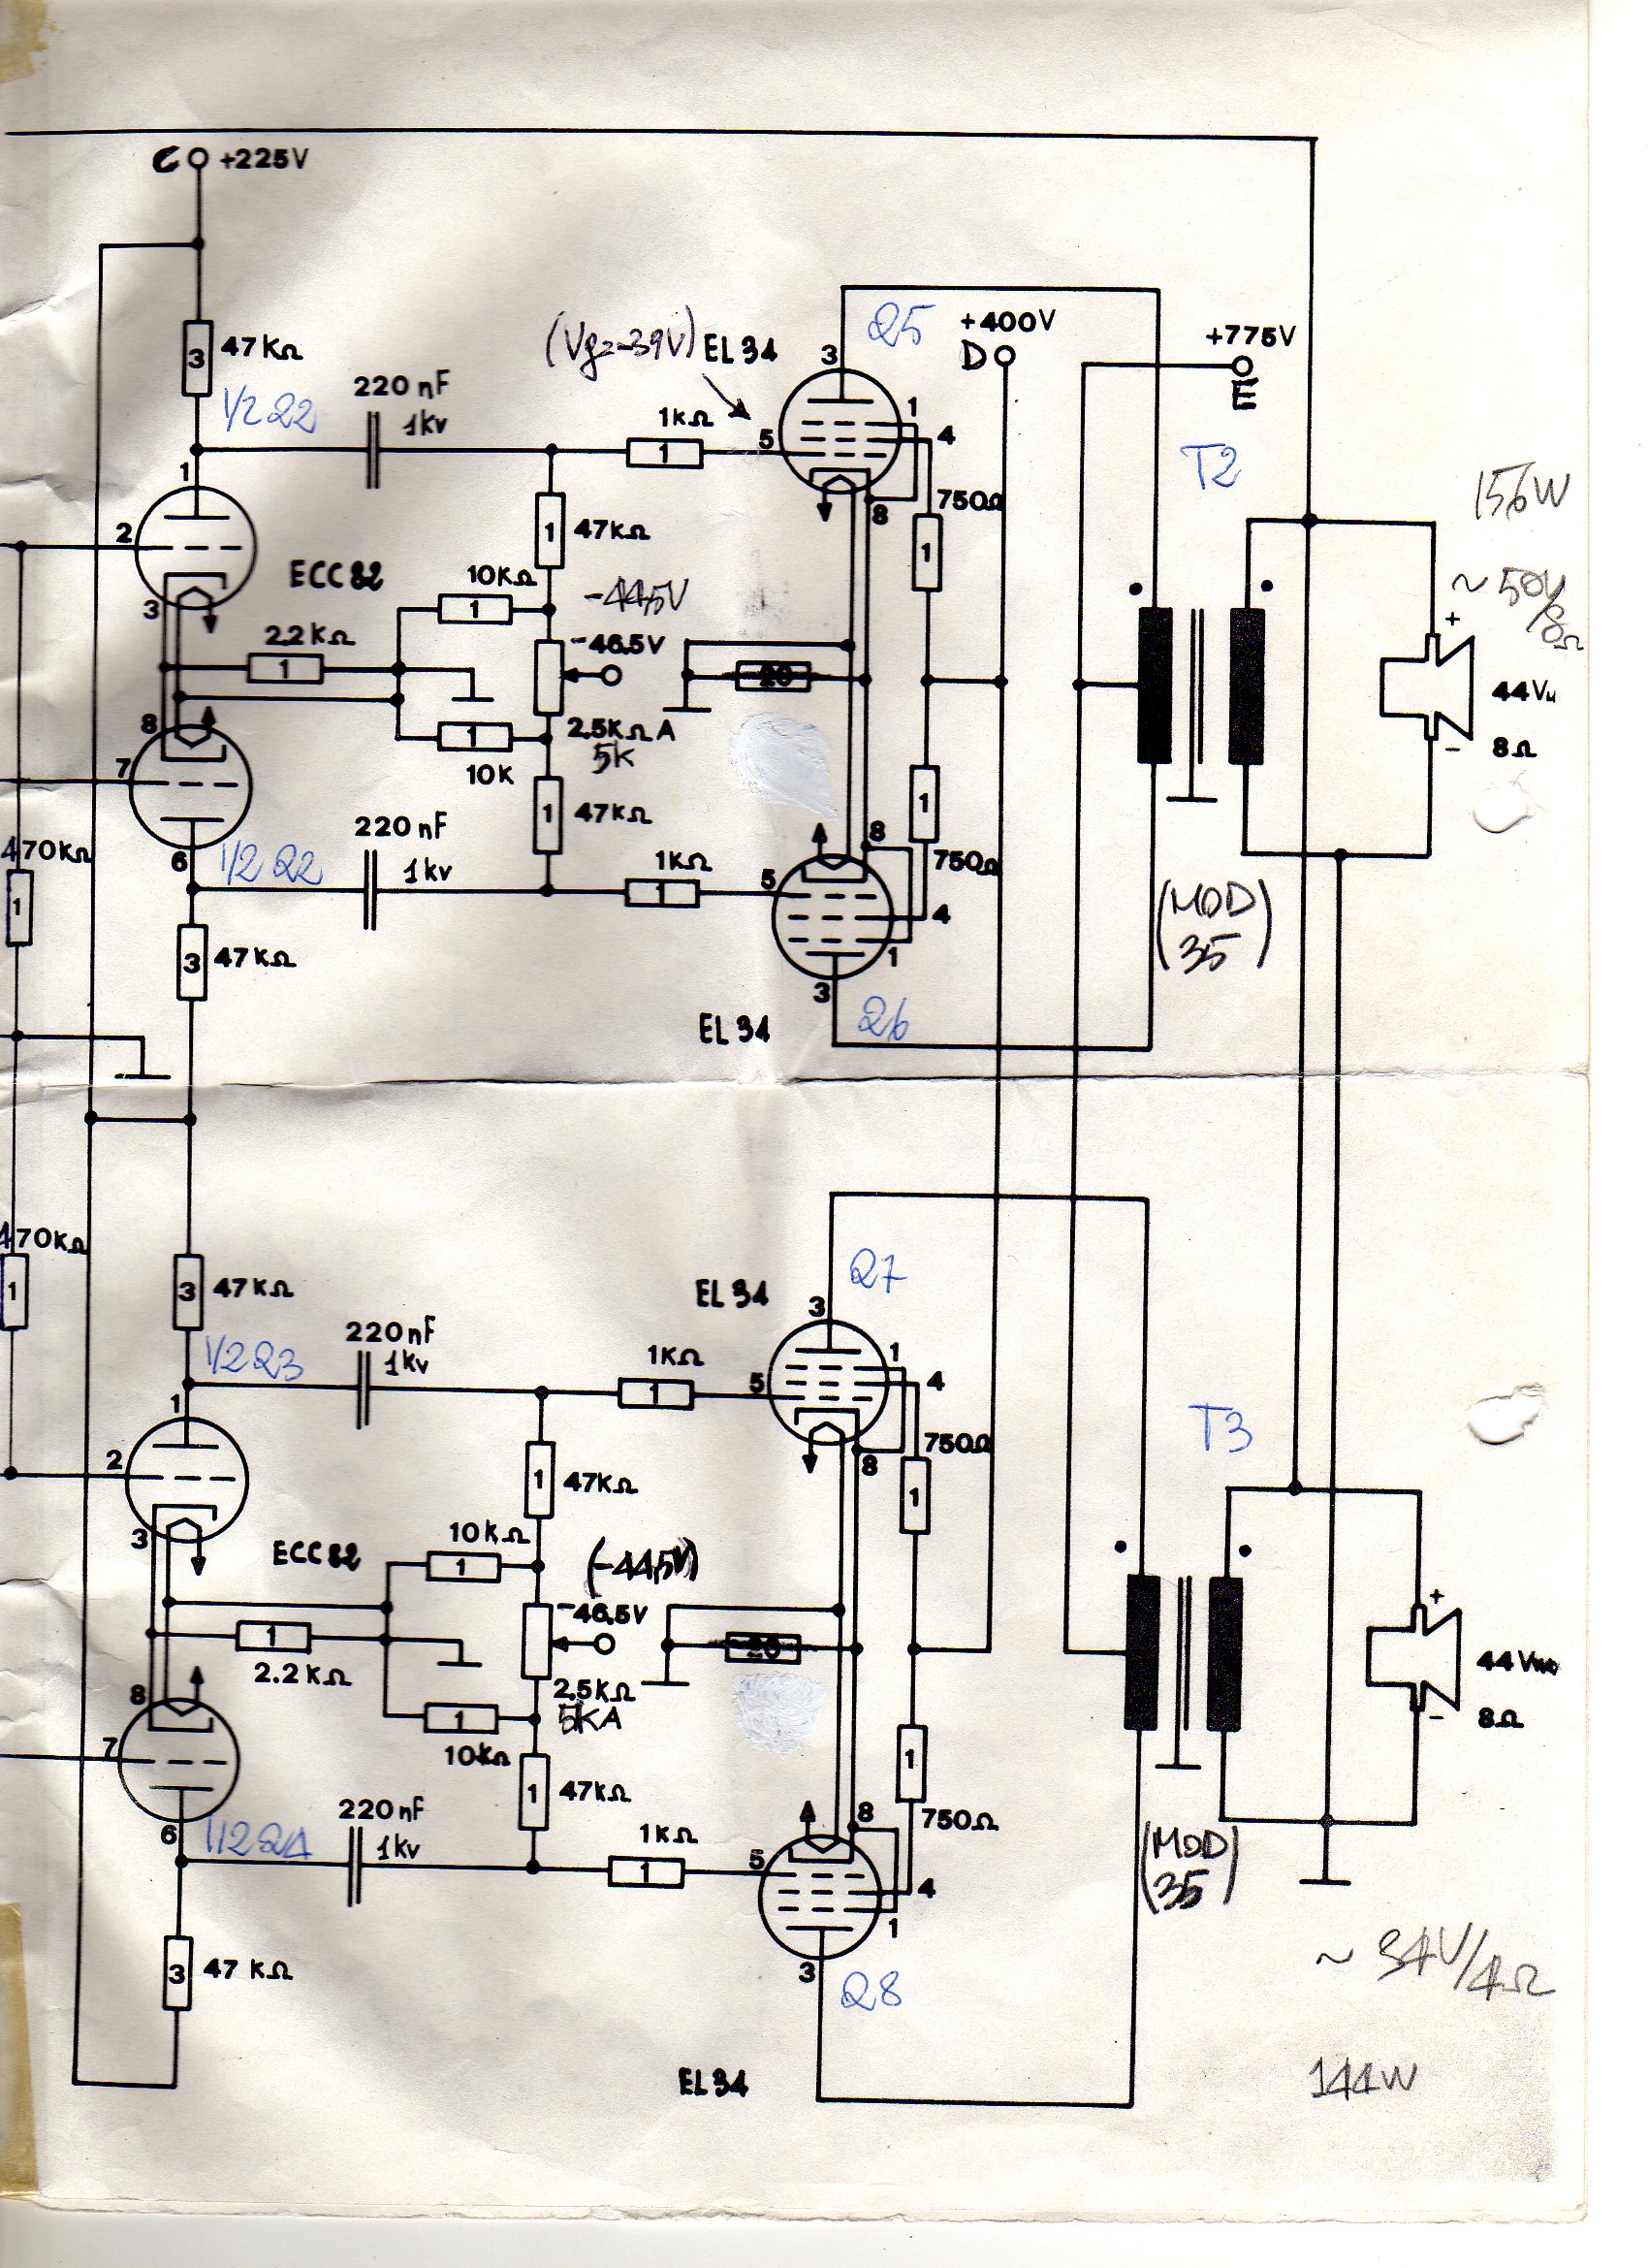 C +225V
3 47KΩ
(Vg=-39V) EL34
Q5
+400V
D
+775V
E
3
1/2 Q2
220 nF
1kv
1KΩ
1
5
1
4
T2
156W
1
8
750Ω
1
2
47KΩ
1
ECC82
10KΩ
1
-44,5V
~ 50V/8Ω
3
2.2KΩ
1
-46.5V
20
+
44V
8Ω
-
8
1
10K
2.5KΩ A
5K
7
1
47KΩ
1
8
750Ω
470KΩ
1
6
1/2 Q2
220 nF
1kv
1KΩ
1
5
4
1
(MOD)
35
3 47KΩ
3
Q6
EL34
470KΩ
1
3 47KΩ
EL34
Q7
3
1/2 Q3
220nF
1kv
1KΩ
1
5
1
4
T3
1
8
750Ω
1
2
47KΩ
1
3
ECC82
10KΩ
1
(-44,5V)
-46.5V
1
2.2KΩ
20
+
44V
8Ω
-
8
1
10KΩ
2.5KΩ
5KA
7
1
47KΩ
1
8
750Ω
6
220nF
1kv
1KΩ
1
5
4
1
(MOD)
35
3 47 KΩ
3
Q8
~ 34V/4Ω
EL34
144W